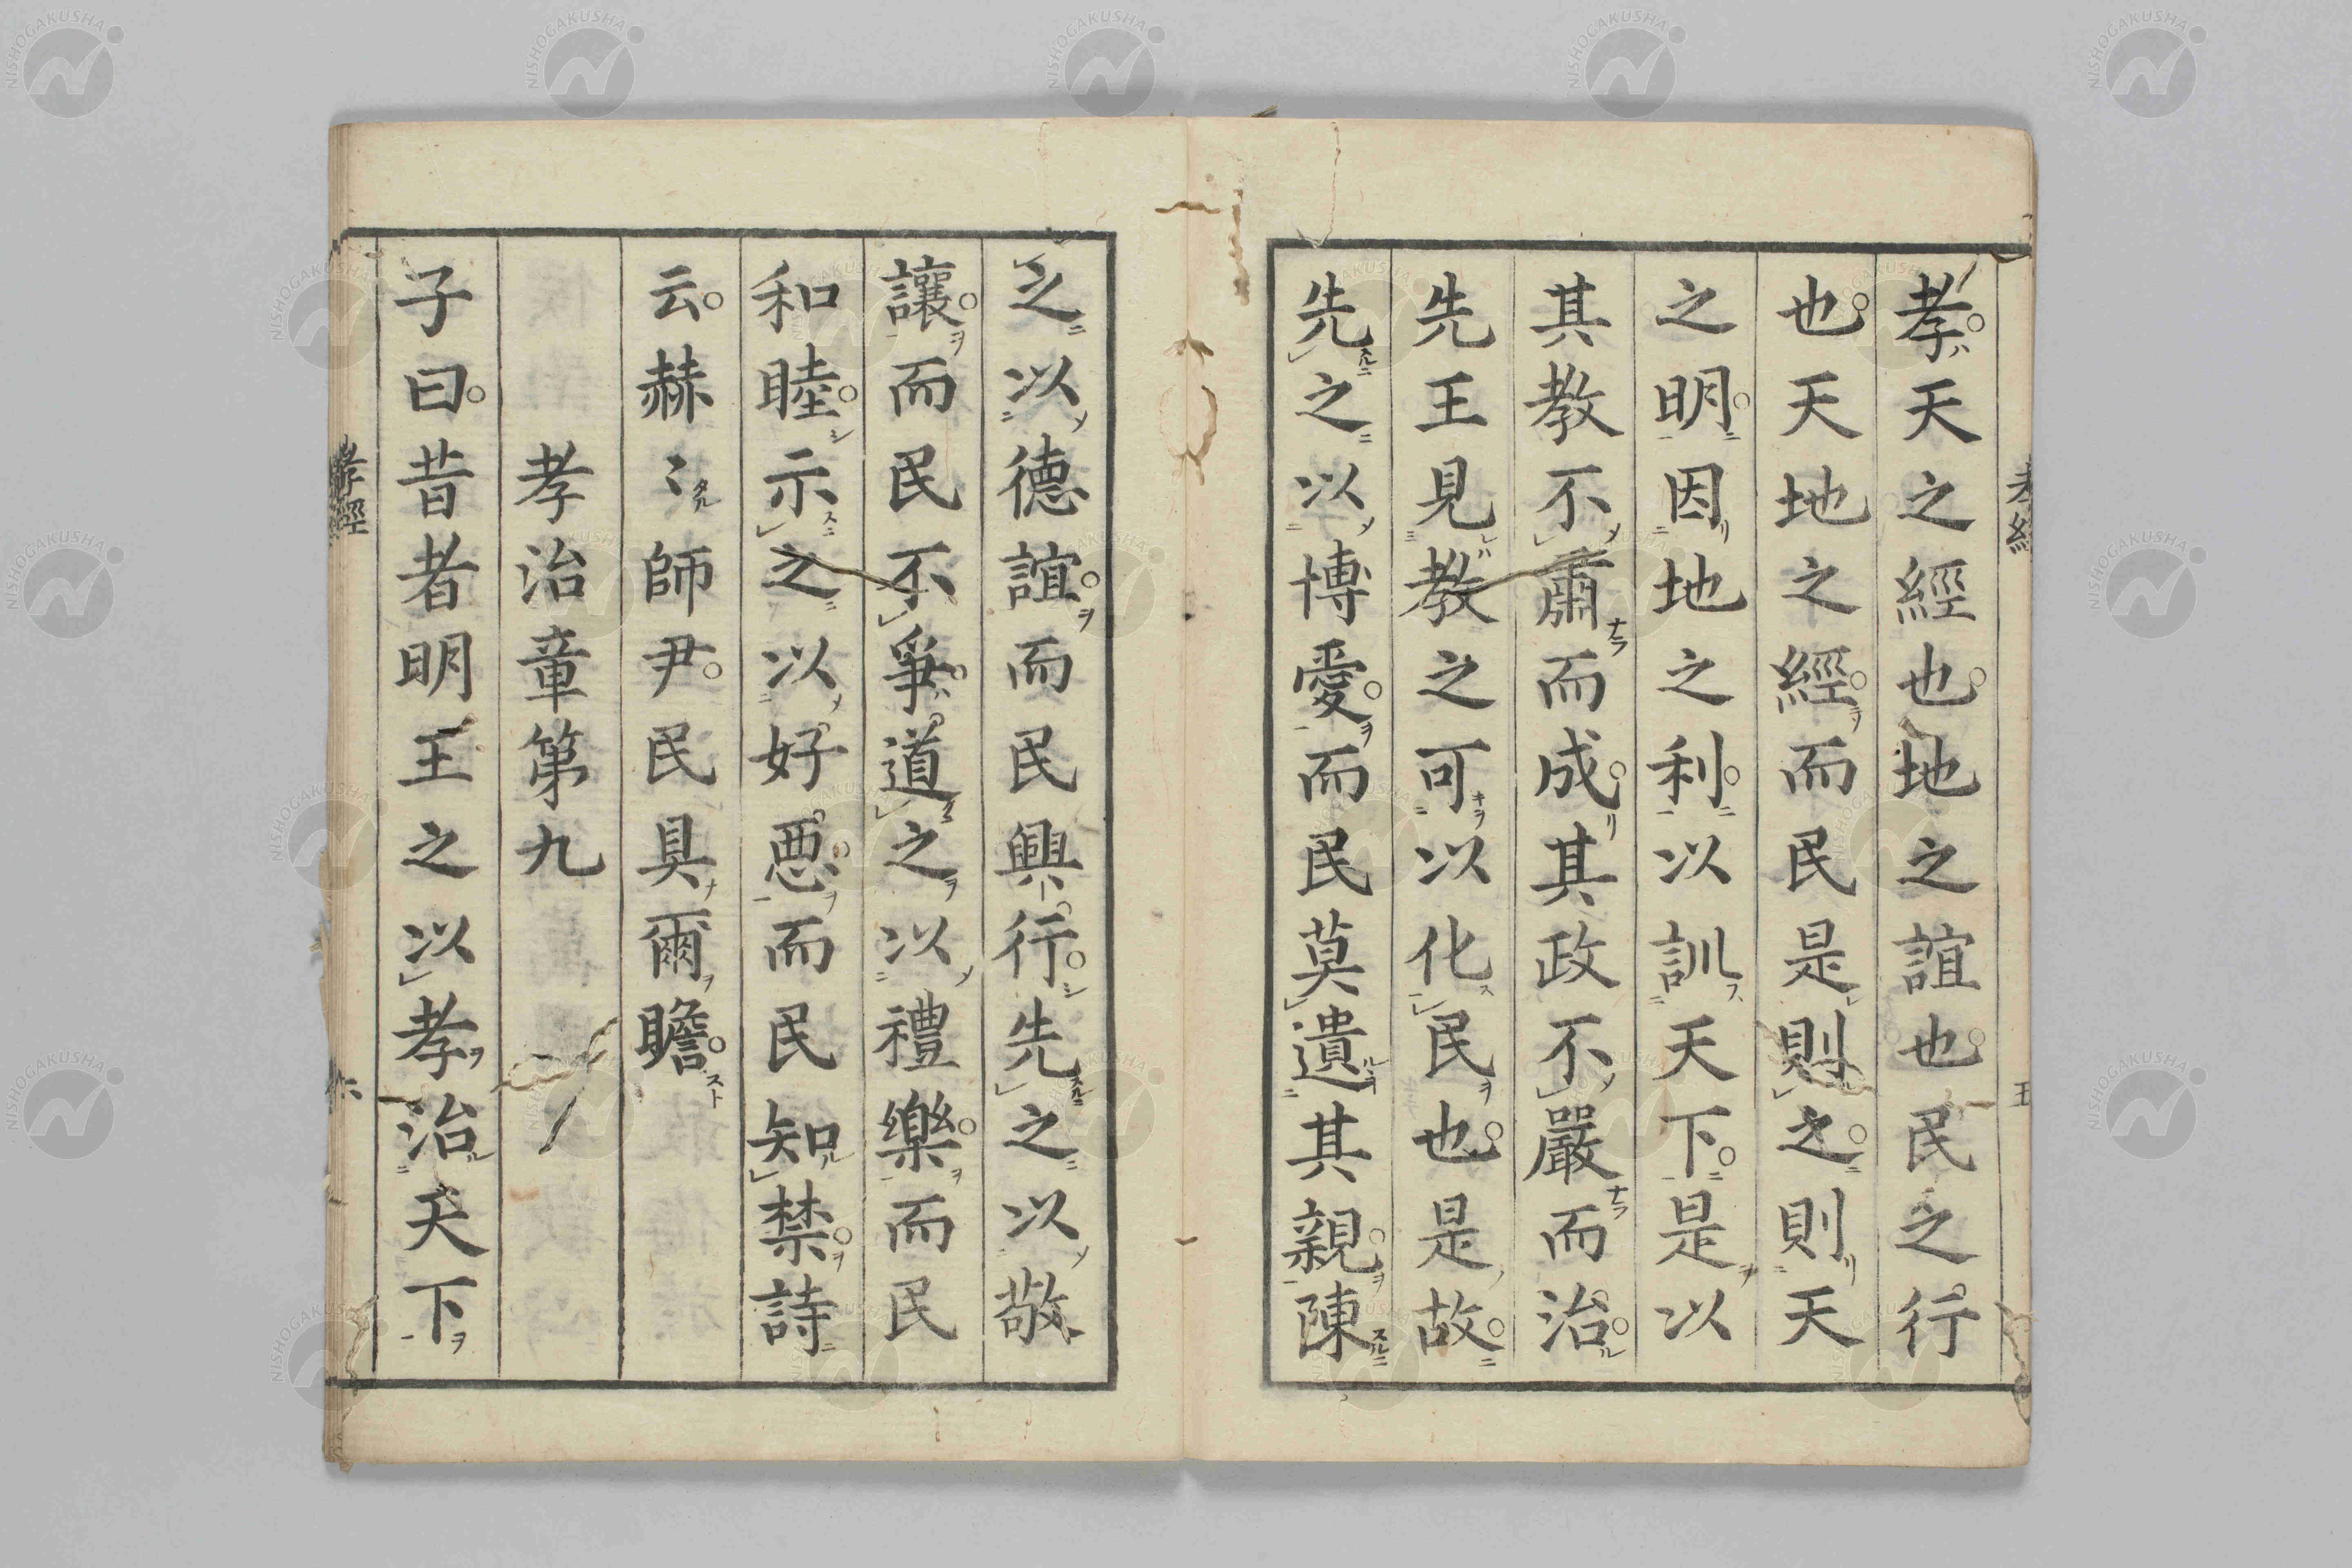 孝天之經也地之誼也民之行
也天地之經而民是則之則天
之明因地之利以訓天下是以
其教不肅而成其政不嚴而治
先王見教之可以化民也是故
先之以博愛而民莫遺其親陳
之以德誼而民興行先之以敬
讓而民不爭道之以禮樂而民
和睦示之以好惡而民知禁詩
云赫〻師尹民具爾瞻
孝治章第九
子曰昔者明王之以孝治天下
孝經
六
五
NISHOGAKUSHA